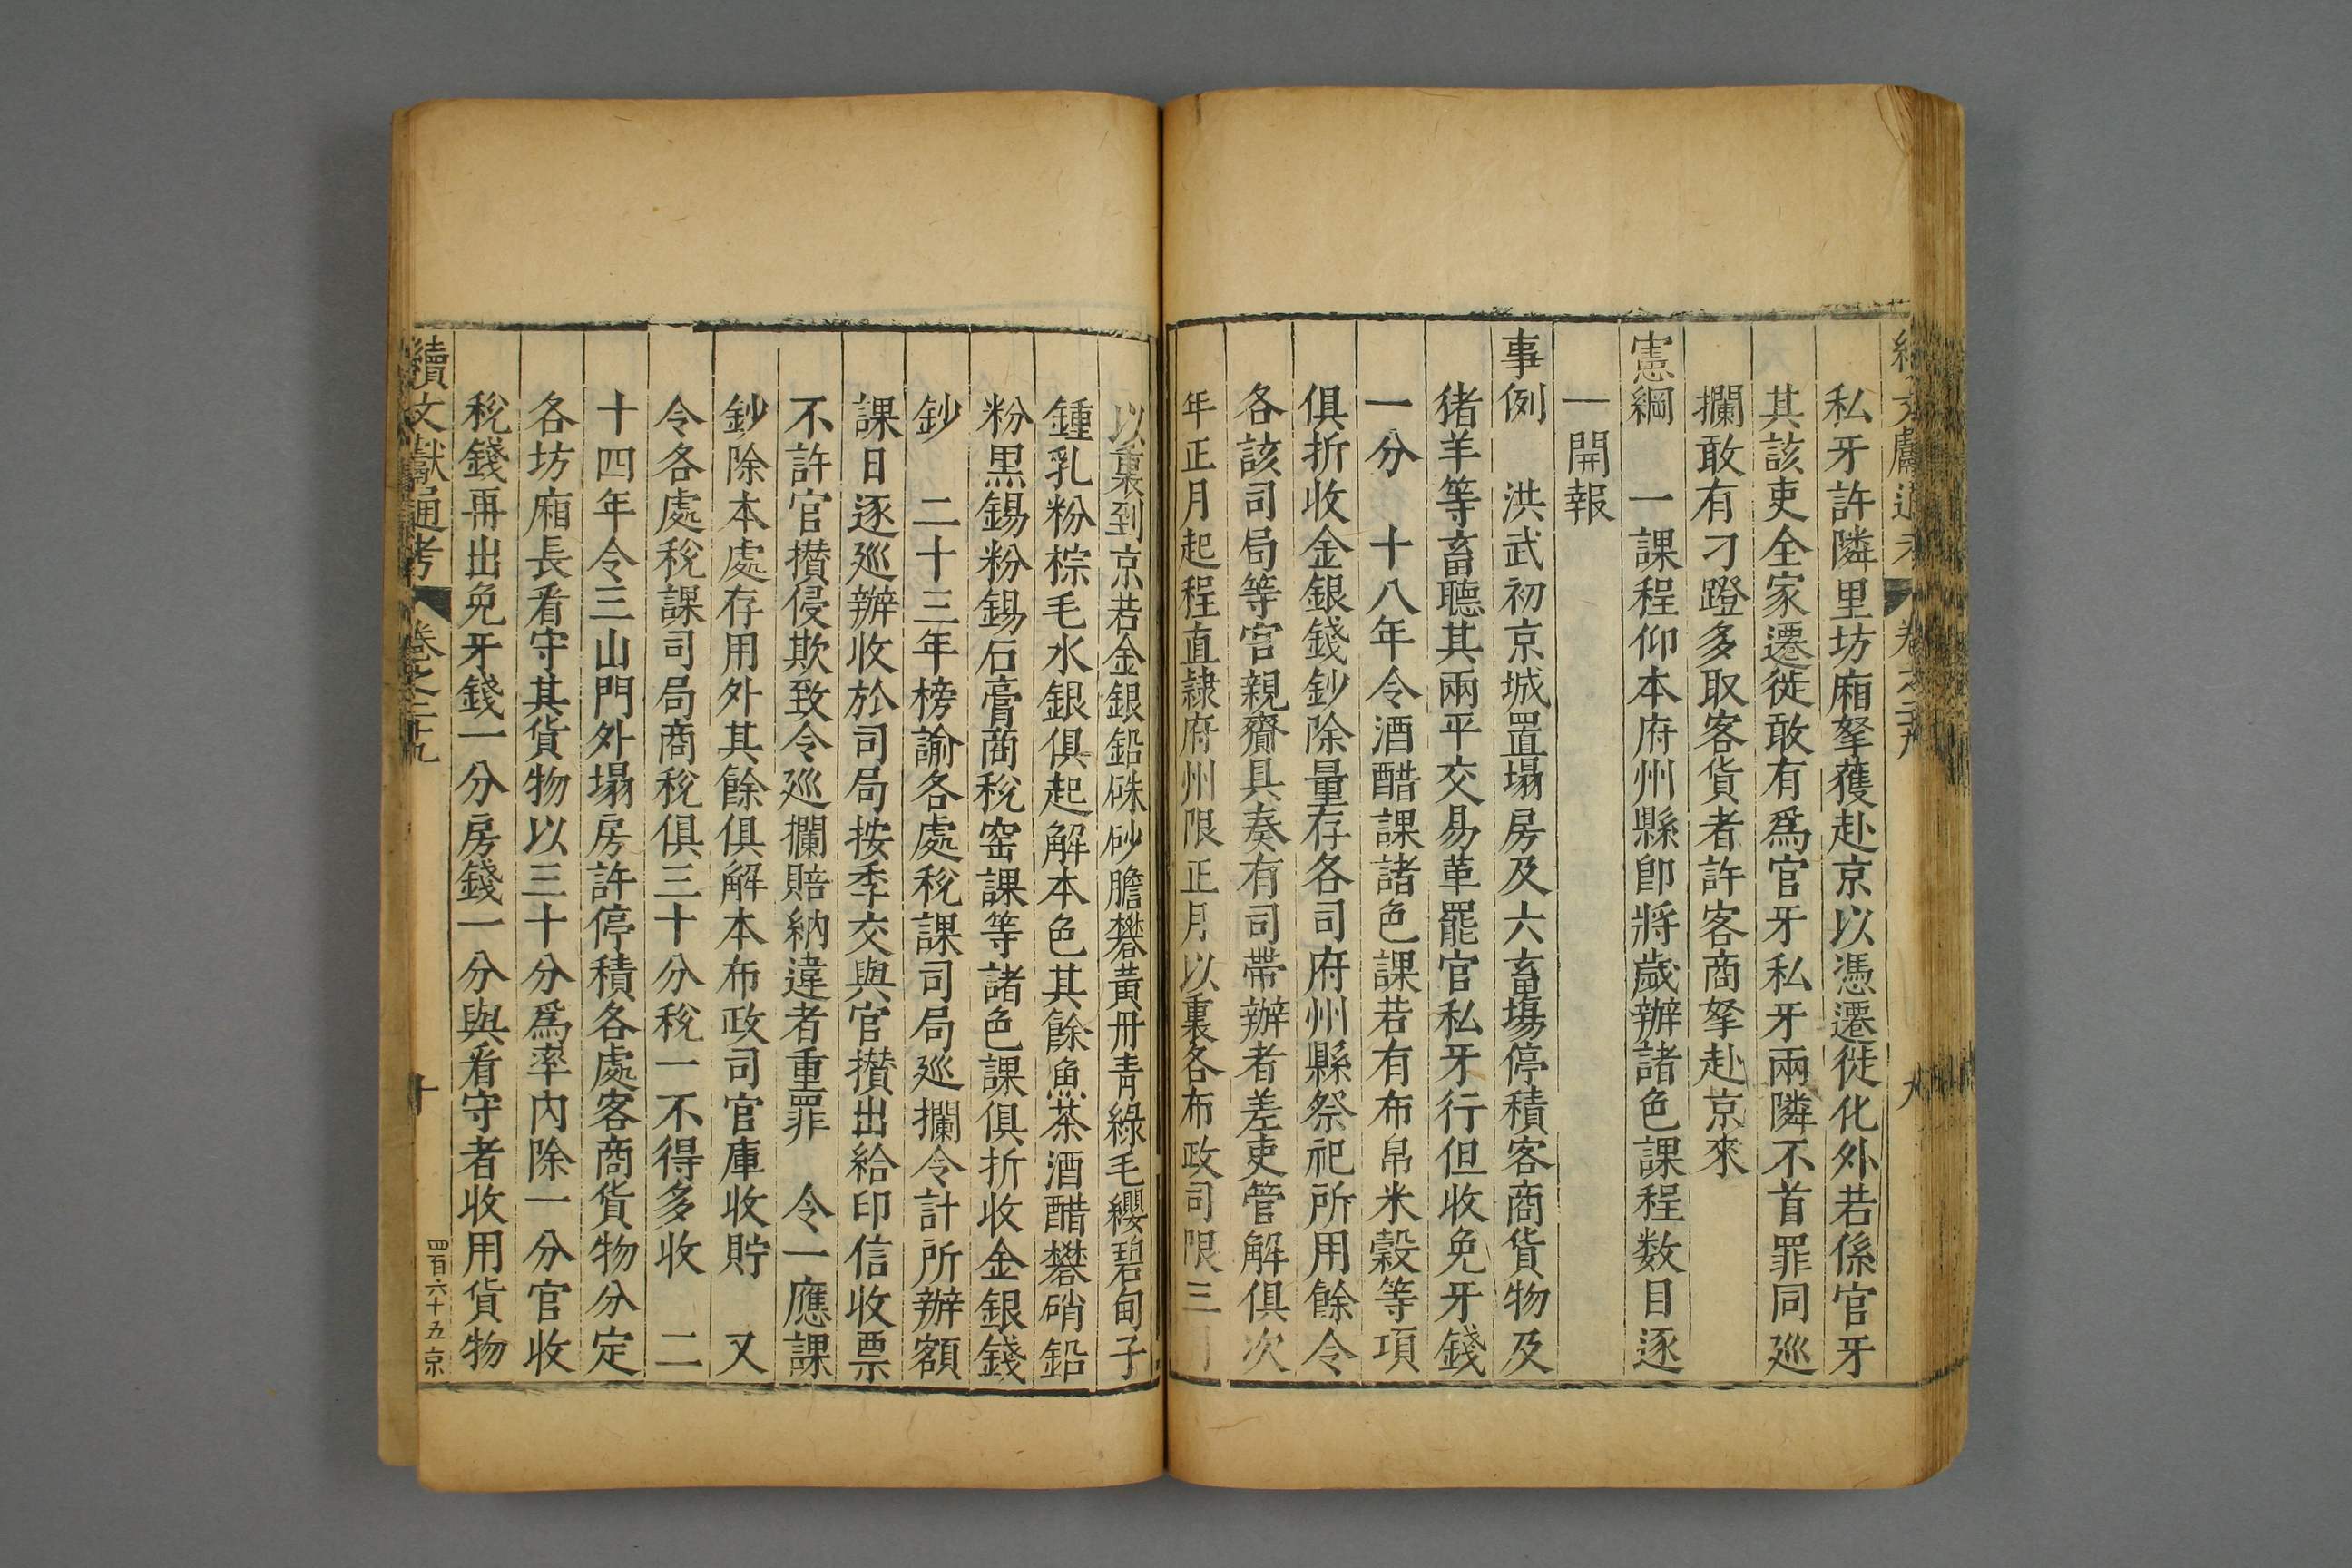 私牙許隣里坊廂拏獲赴京以憑遷徙化外若係官牙
其該吏全家遷徙敢有爲官牙私牙兩隣不首罪同廵
攔敢有刁蹬多取客貨者許客商拏赴京來
憲綱　一課程仰本府州縣卽將歲辦諸色課程数目逐
一開報
事例　洪武初京城置塌房及六畜塲停積客商貨物及
猪羊等畜聽其兩平交易革罷官私牙行但收免牙錢
一分　十八年令酒醋課諸色課若有布帛米穀等項
俱折收金銀錢鈔除量存各司府州縣祭祀所用餘令
各該司局等官親齎具奏有司帶辦者差吏管解俱次
年正月起程直隷府州限正月以裏各布政司限三月
以裏到京若金銀鉛硃砂膽礬黃丹青綠毛纓碧甸子
鍾乳粉棕毛水銀俱起解本色其餘魚茶酒醋礬硝鉛
粉黒錫粉錫石膏商稅窑課等諸色課俱折收金銀錢
鈔　二十三年榜諭各處稅課司局廵攔令計所辦額
課日逐廵辦收於司局按季交與官攅出給印信收票
不許官攅侵欺致令廵攔賠納違者重罪　令一應課
鈔除本處存用外其餘俱解本布政司官庫收貯　又
令各處稅課司局商稅俱三十分稅一不得多收　二
十四年令三山門外塌房許停積各處客商貨物分定
各坊廂長看守其貨物以三十分爲率內除一分官收
稅錢再出免牙錢一分房錢一分與看守者收用貨物
續文獻通考　卷之二十九　十　四百六十五　京